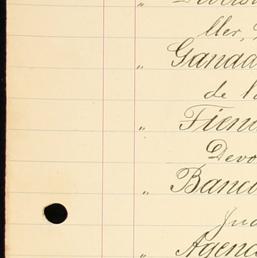 ller,
" Ganad
de l
" Tien
Devo
" Banco
Ju
" Agenc